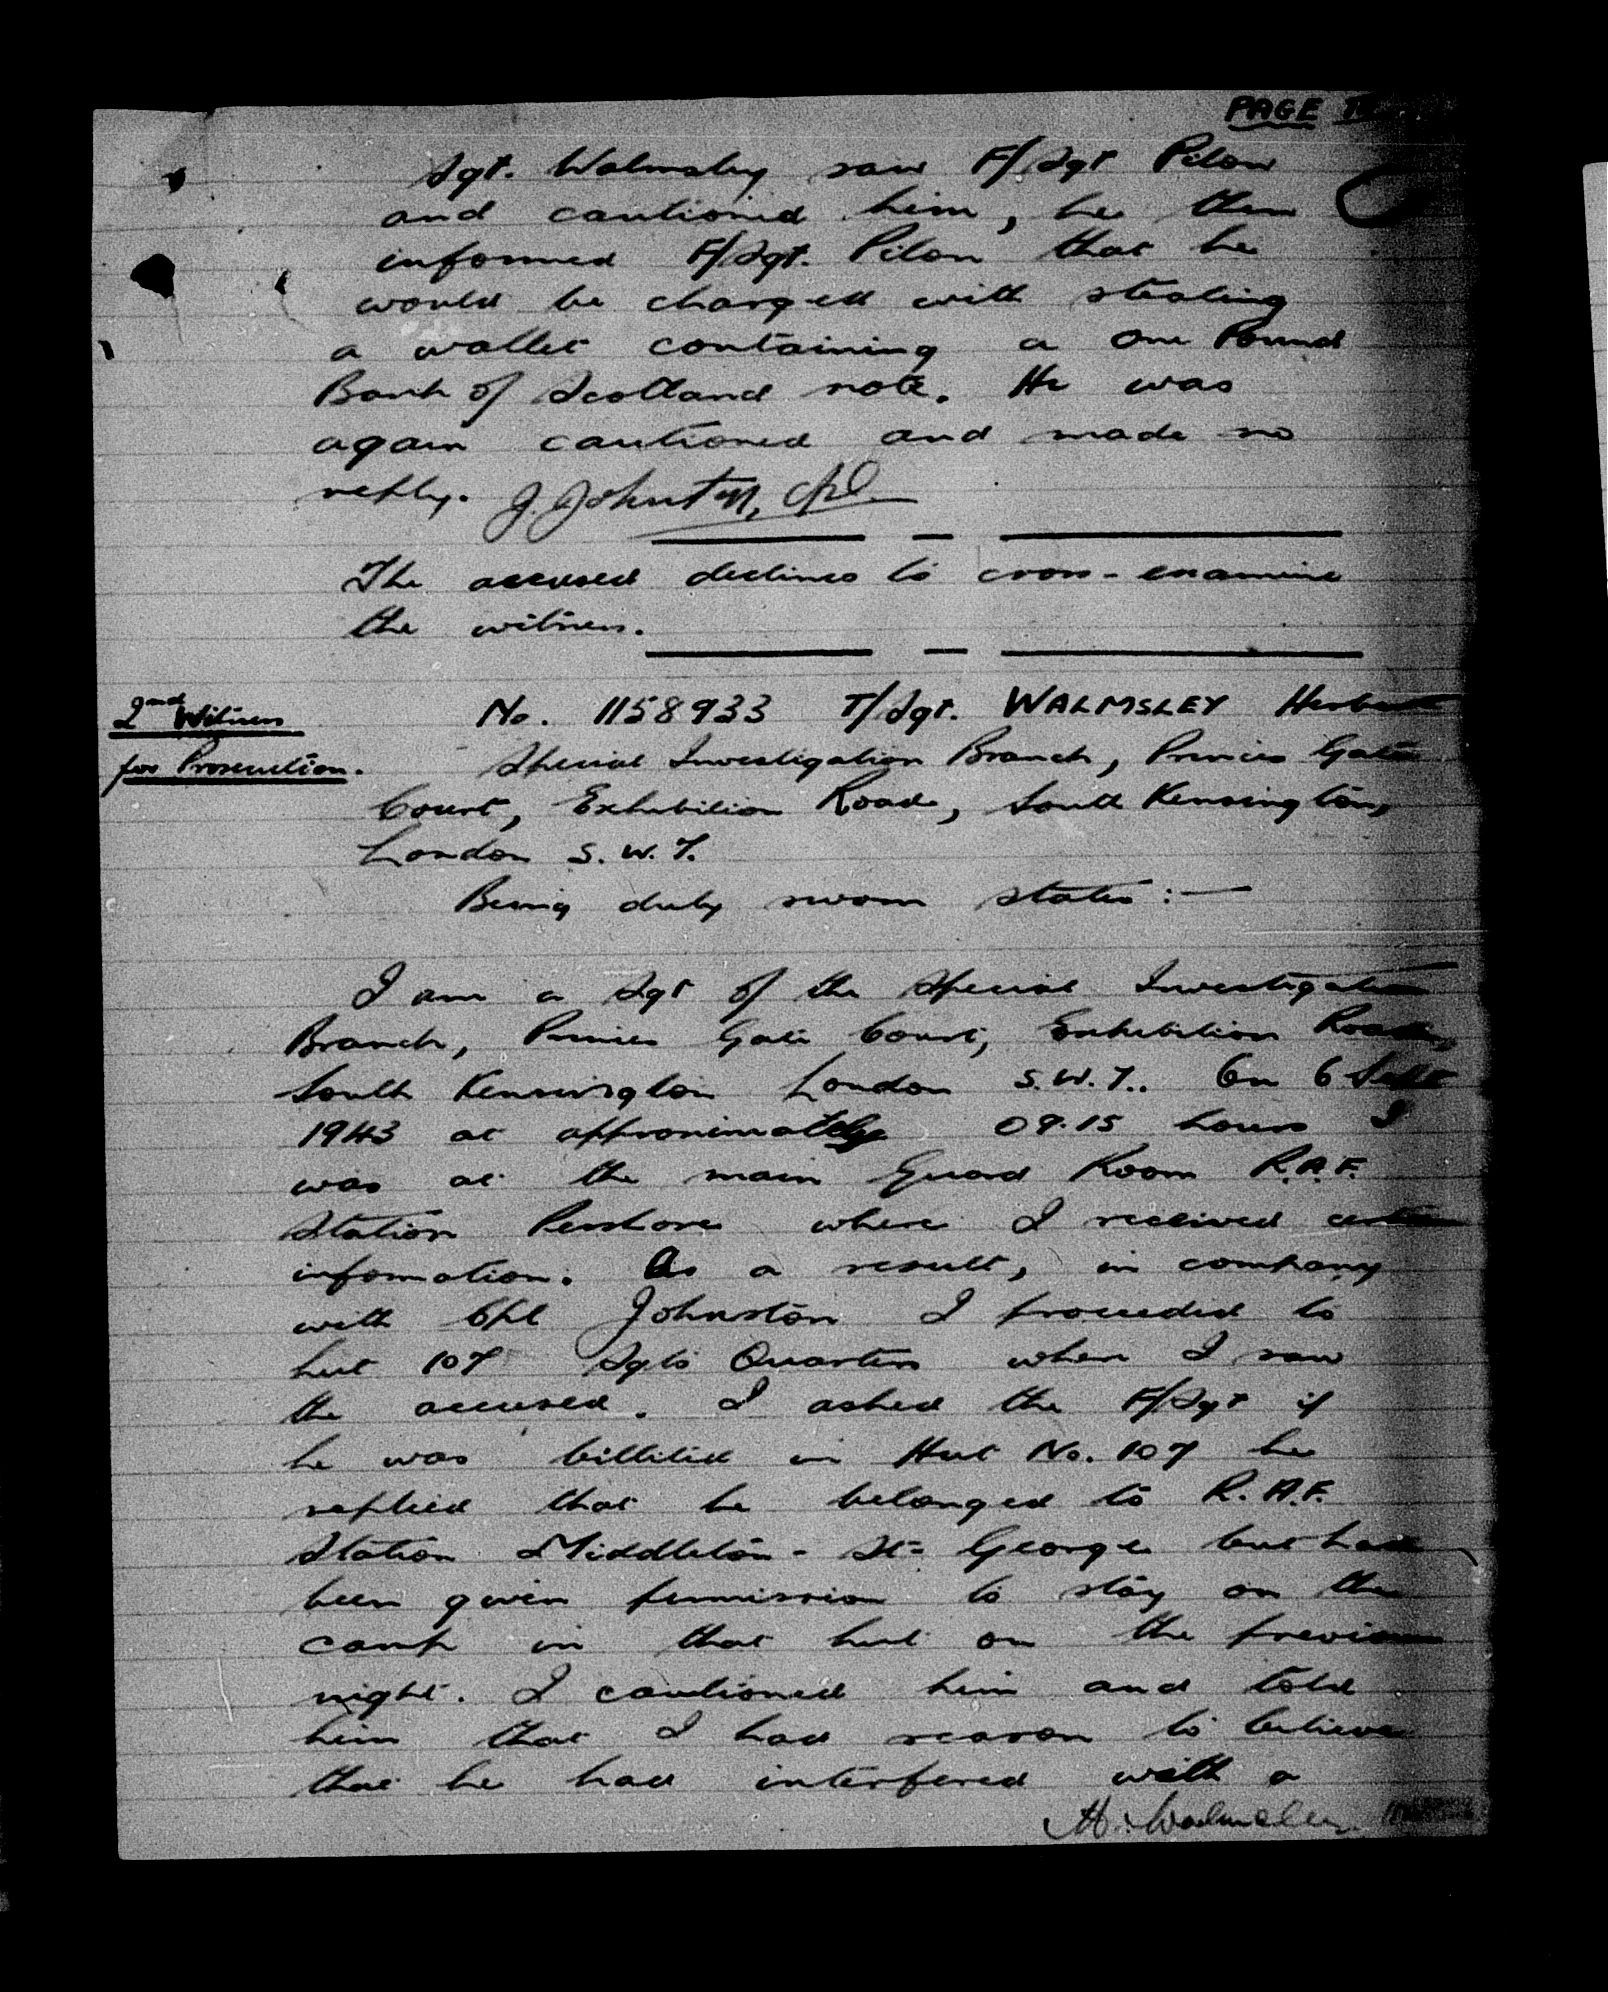 PAGE
Sgt. Walmsley saw F/Sgt Pilon
and cautioned him, he then
informed F/Sgt. Pilon that he
would be charged with stealing
a wallet containing a One Pound
Bank of Scotland note. He was
again cautioned and made no
reply. J. Johnston, Cpl.
The accused declines to cross-examine
the witness.
2nd Witness
for Prosecution.
No. 1158933 T/Sgt. WALMSLEY Herbert
Special Investigation Branch, Princes Gate
Court, Exhibition Road, South Kensington,
London S.W.7.
Being duly sworn states :-
I am a Sgt of the Special Investigation
Branch, Princes Gate Court, Exhibition Road,
South Kensington London S.W.7.. On 6 Sept
1943 at approximately 09.15 hours I
was at the main Guard Room R.A.F.
Station Pershore where I received certain
information. As a result, in company
with Cpl Johnston I proceeded to
hut 107 Sgts Quarters where I saw
the accused. I asked the F/Sgt if
he was billited in Hut No. 107 he
replied that he belonged to R.A.F.
Station Middleton-St-George but had
been given permission to stay on the
camp in that hut on the previous
night. I cautioned him and told
him that I had reason to believe
that he had interfered with a
H. Walmsley.